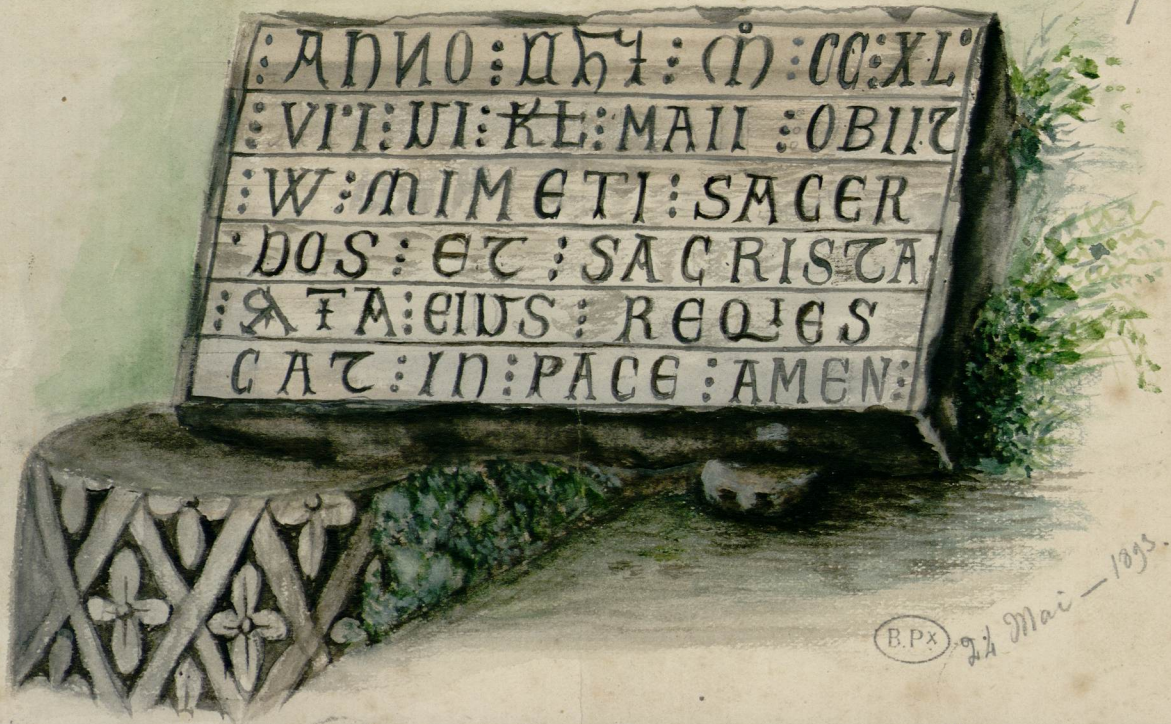 : ANNO : DNI : M : CC : XL
: VII : VI : KL : MAII : OBIIT
: W : MIMETI : SACER
: DOS : ET : SACRISTA
: ATA : EIUS : REQIES
CAT : IN : PACE : AMEN :
B.Px
24 Mai — 1893.